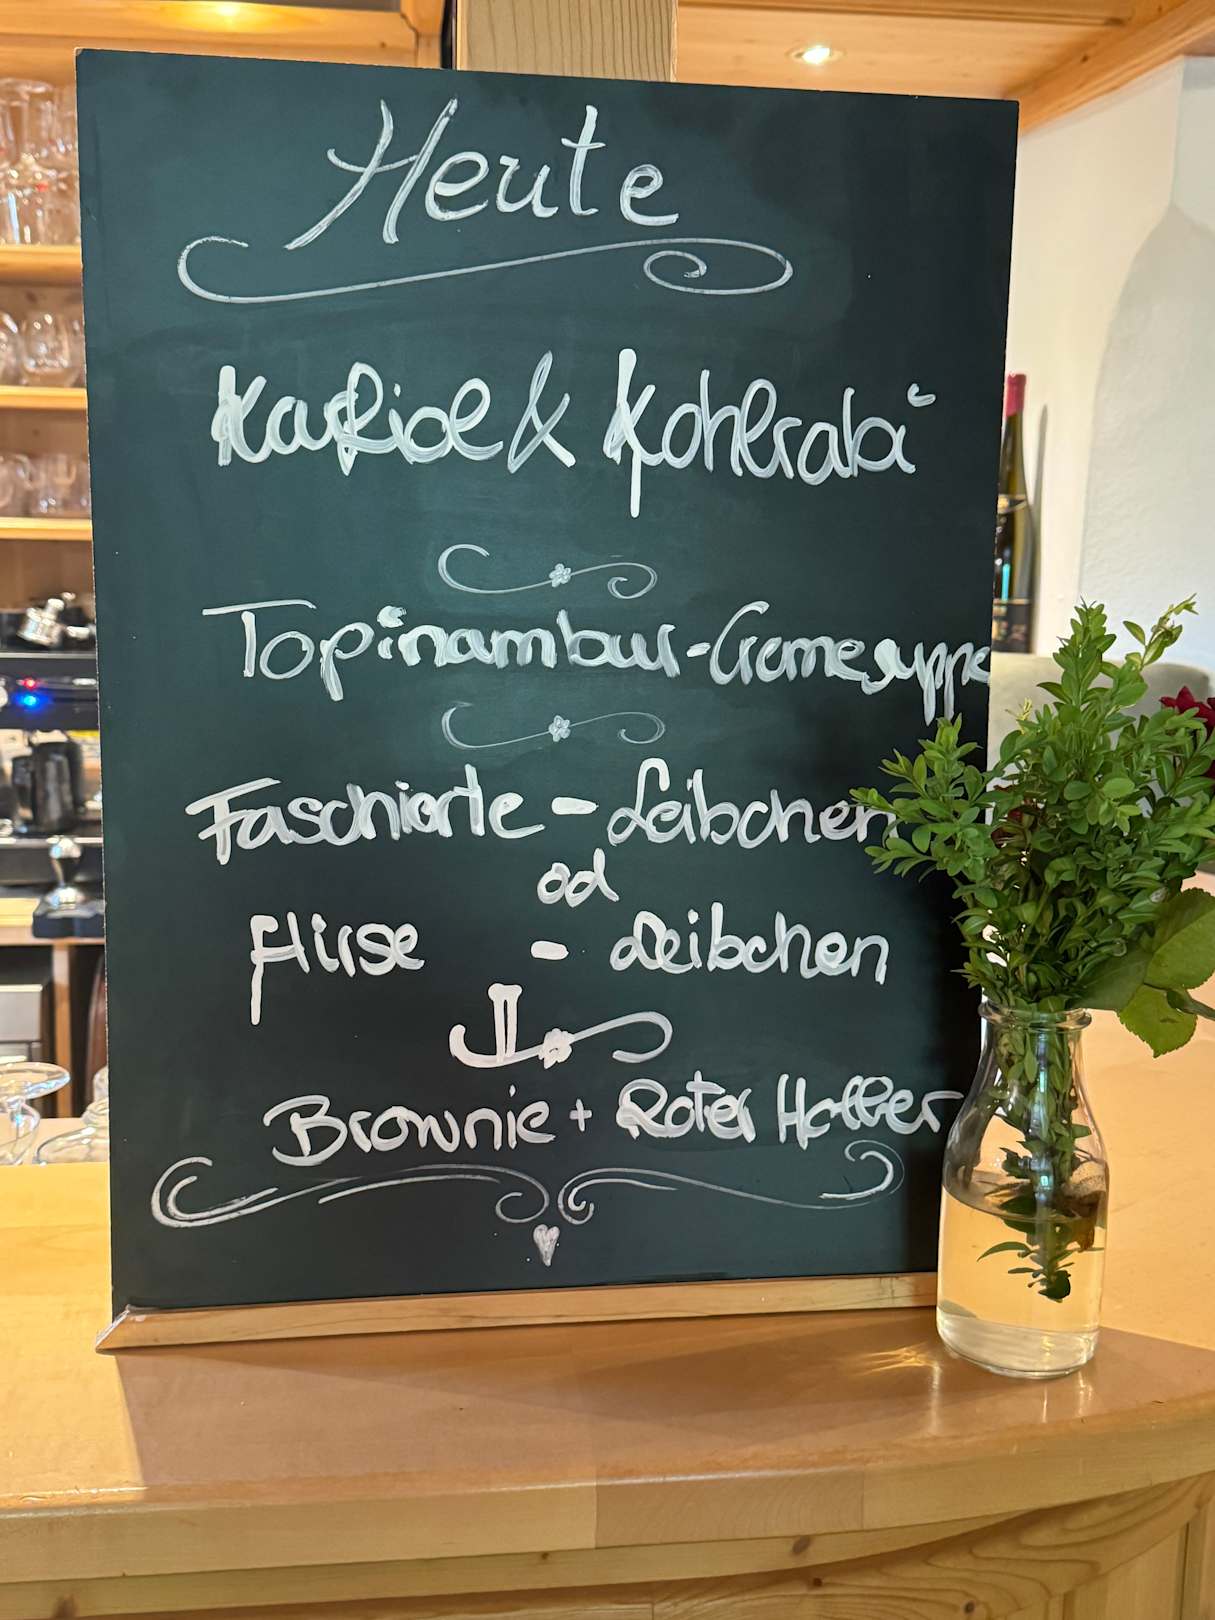 Heute
Karfiol & Kohlrabi
Topinambur-Cremesuppe
Faschierte - Leibchen
od
Hirse - Leibchen
Brownie + Roter Holler